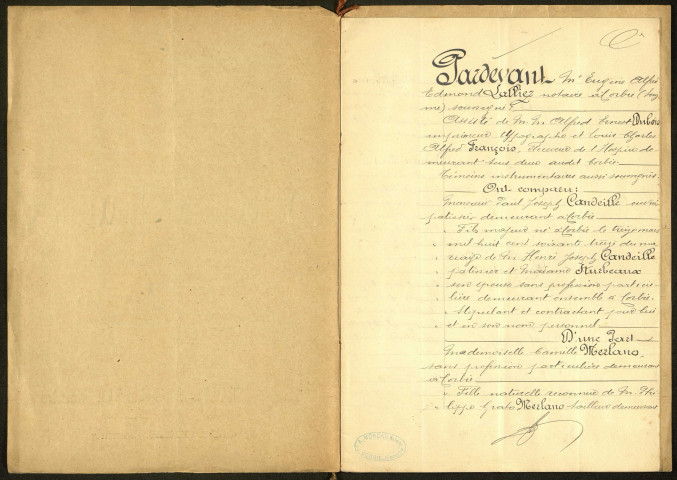 Pardevant Me Eugène Alfred
Edmond Lalliez notaire à Corbie (Som
me) soussigné
Assisté de M.M. Alfred Ernest Dubois
imprimeur typographe et Louis Charles
Alfred François, Receveur de l'Hospice de
meurant tous deux audit Corbie
Témoins instrumentaires aussi soussignés
Ont comparu:
Monsieur Paul Joseph Candeille ouvrier
pâtissier demeurant à Corbie
Fils majeur né à Corbie le treize mars
mil huit cent soixante treize du ma
riage de M. Henri Joseph Candeille
pâtissier et Madame
son épouse sans profession particu
lière demeurant ensemble à Corbie.
Stipulant et contractant pour lui
et en son nom personnel
D'une Part
Mademoiselle Camille Merlano,
sans profession particulière demeurant
à Corbie
Fille naturelle reconnue de M. Phi
lippe Merlano tailleur demeurant